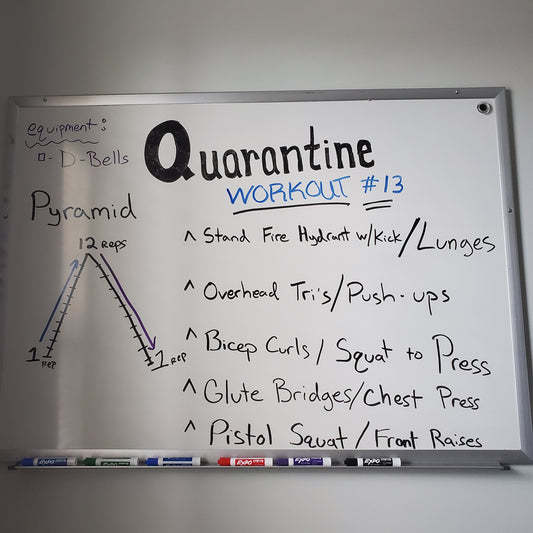 equipment:
D-Bells
Quarantine
WORKOUT #13
Pyramid
12 Reps
1 Rep
1 Rep
^ Stand Fire Hydrant w/Kick/Lunges
^ Overhead Tri's/Push-ups
^ Bicep Curls/Squat to Press
^ Glute Bridges/Chest Press
^ Pistol Squat/Front Raises
EXPO
EXPO
EXPO
EXPO
EXPO
EXPO